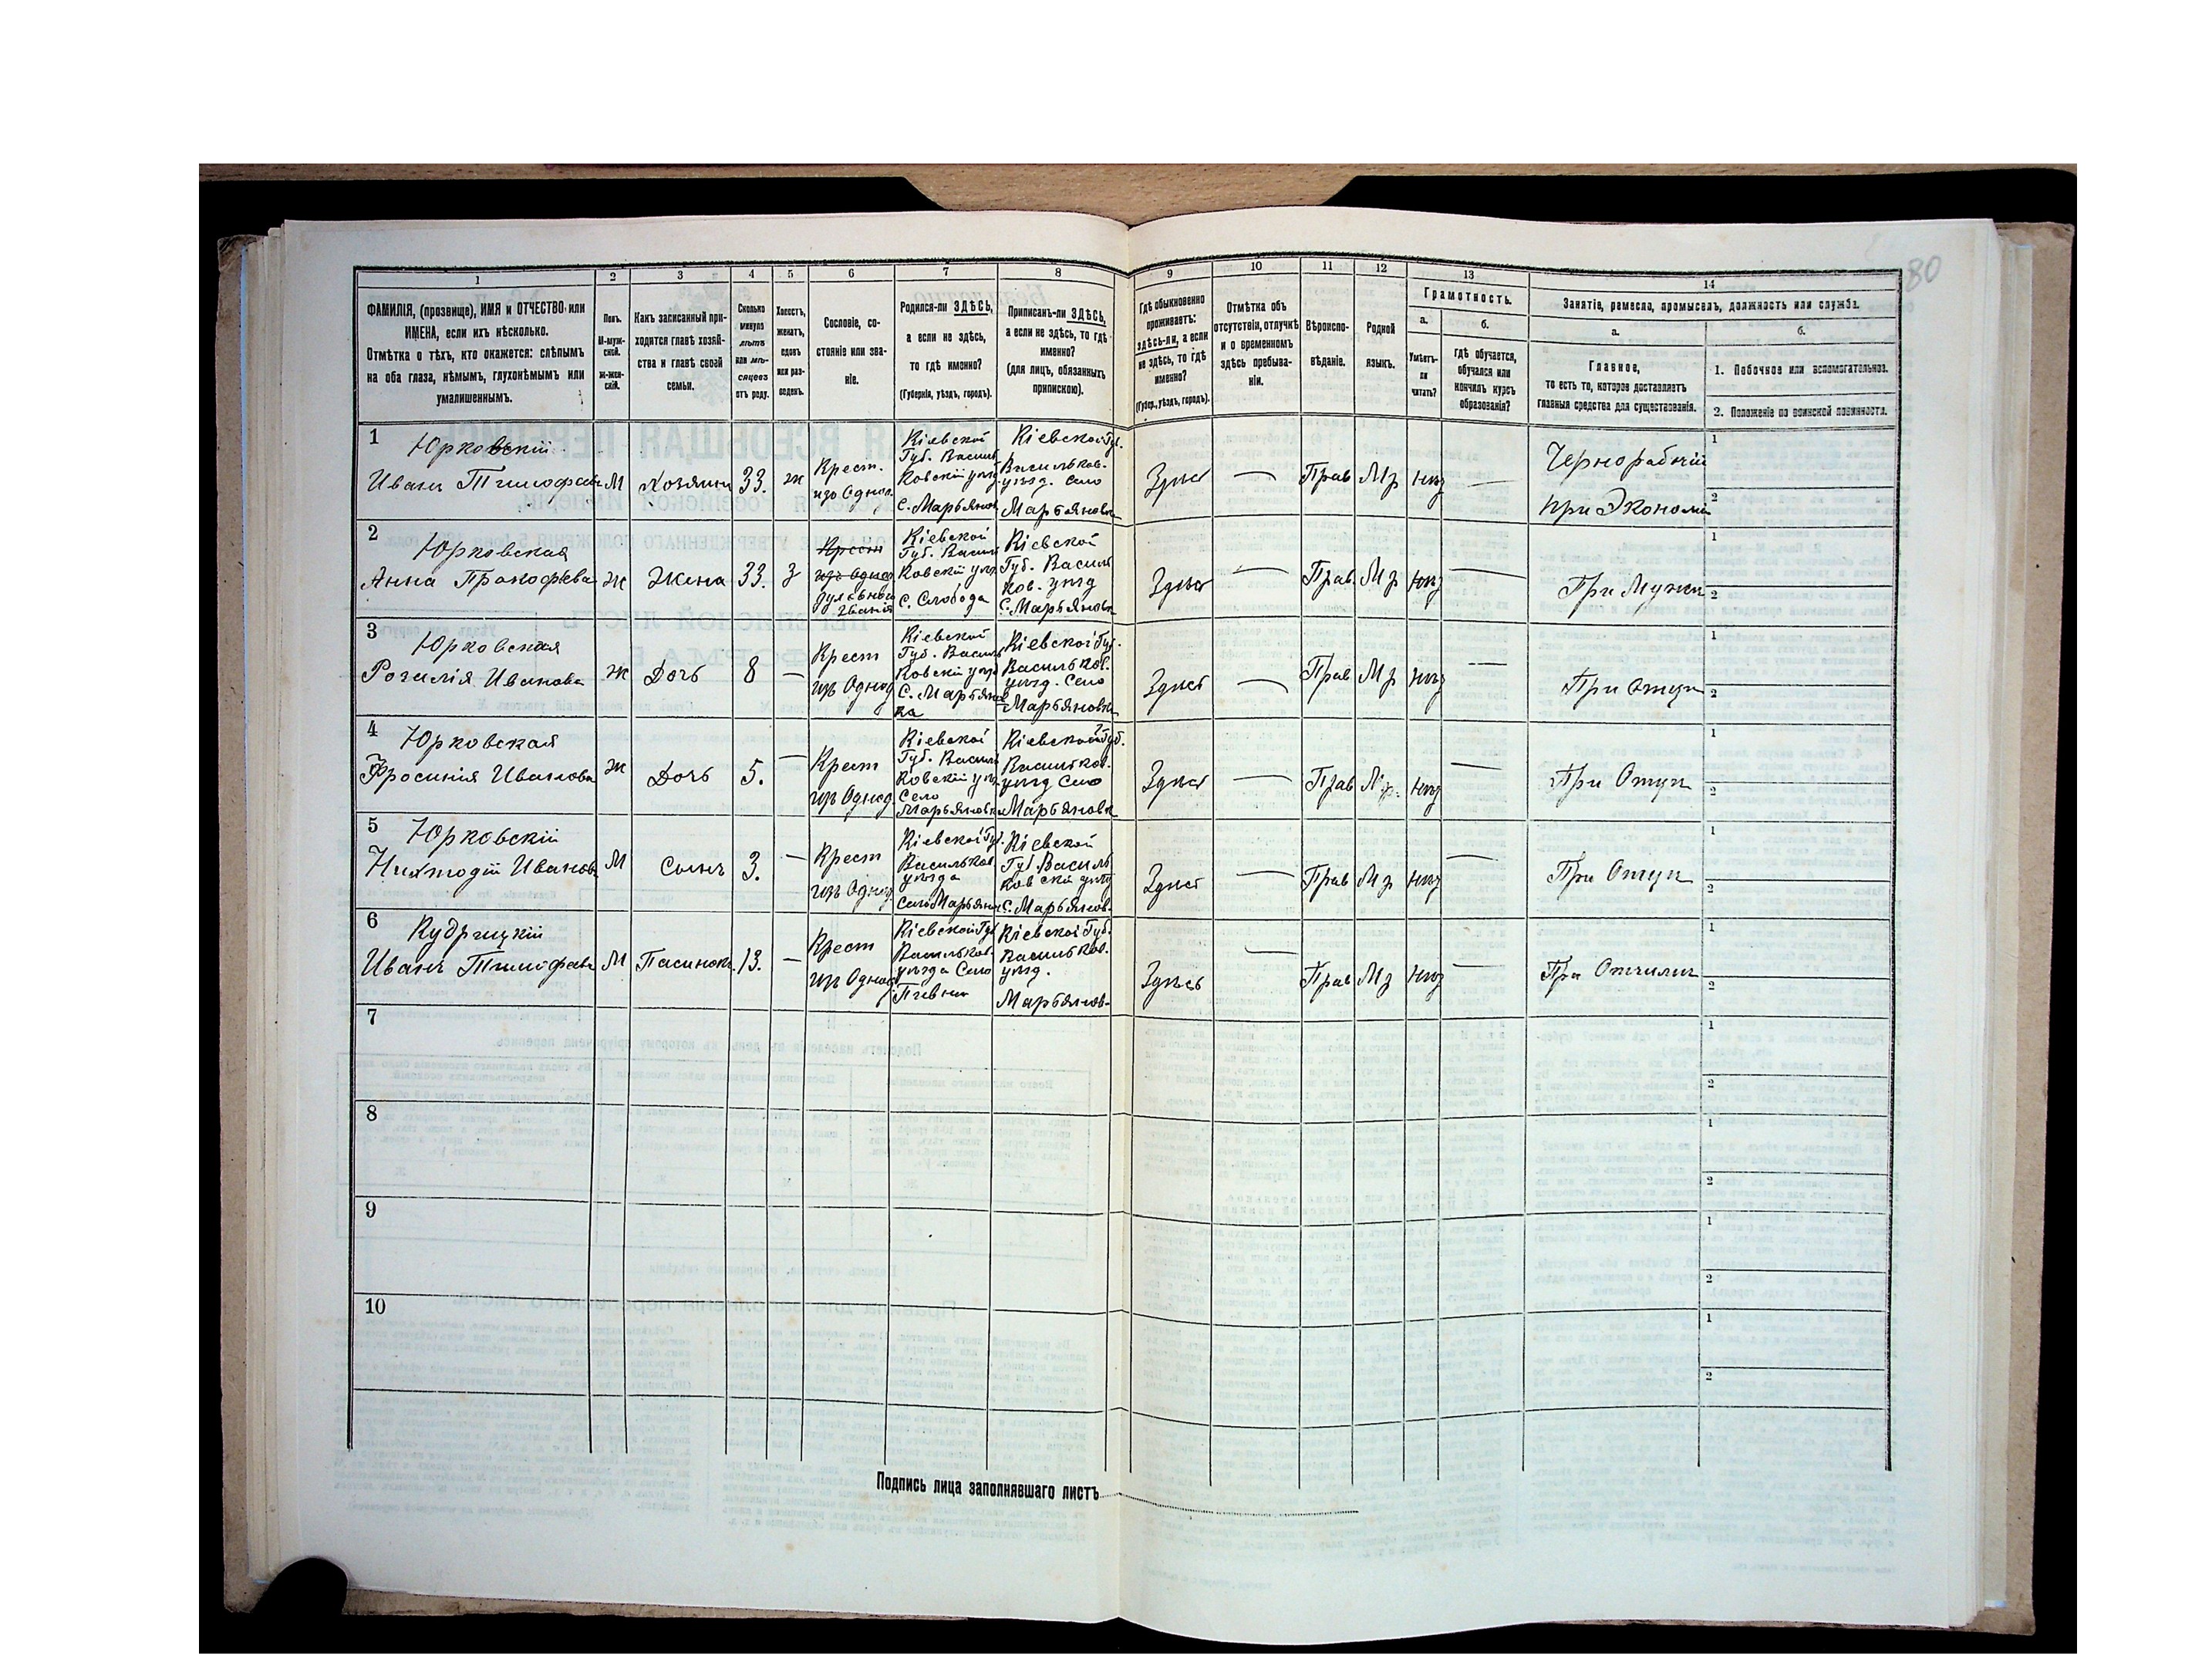 80
1 2 3 4 5 6 7 8 9 10 11 12 13 14
ФАМИЛІЯ, (прозвище), ИМЯ и ОТЧЕСТВО или
ИМЕНА, если ихъ нѣсколько.
Отмѣтка о тѣхъ, кто окажется: слѣпымъ
на оба глаза, нѣмымъ, глухонѣмымъ или
умалишеннымъ.
Полъ.
М-муж-
ской.
Ж-жен-
скій.
Какъ записанный при-
ходится главѣ хозяй-
ства и главѣ своей
семьи.
Сколько
минуло
лѣтъ
или мѣ-
сяцевъ
отъ роду.
Холостъ,
женатъ,
вдовъ
или раз-
веденъ.
Сословіе, со-
стояніе или зва-
ніе.
Родился-ли ЗДѢСЬ,
а если не здѣсь,
то гдѣ именно?
(Губернія, уѣздъ, городъ).
Приписанъ-ли ЗДѢСЬ,
а если не здѣсь, то гдѣ
именно?
(для лицъ, обязанныхъ
припискою).
Гдѣ обыкновенно
проживаетъ:
здѣсь-ли, а если
не здѣсь, то гдѣ
именно?
(Губер., уѣздъ, городъ).
Отмѣтка объ
отсутствіи, отлучкѣ
и о временномъ
здѣсь пребыва-
ніи.
Вѣроиспо-
вѣданіе.
Родной
языкъ.
Грамотность.
а.
Умѣетъ-
ли
читать?
б.
гдѣ обучается,
обучался или
кончилъ курсъ
образованія?
Занятіе, ремесло, промыселъ, должность или служба.
а.
Главное,
то есть то, которое доставляетъ
главныя средства для существованія.
б.
1. Побочное или вспомогательное.
2. Положеніе по воинской повинности.
1 Юрковскій
Иванъ Тимофеев М Хозяинъ 33. ж
Крест.
изъ Однод.
Кіевской
Губ. Василь
ковскій уѣзд.
С. Марьянов
Кіевской Губ.
Васильков.
уѣзд. Село
Марьяновка
Здѣсь — Прав Мр нѣт —
Чернорабочій
при Экономіи
1
2
2 Юрковская
Анна Прокофьева ж Жена 33. З
Крест
изъ Однод
Кіевской
Губ. Василь
ковскій уѣзд
С. Слобода
Кіевской
Губ. Василь
ков. уѣзд
С. Марьяновк
Здѣсь — Прав. Мр нѣт —
При Мужи
1
2
3 Юрковская
Розалія Иванова ж Дочь 8 —
Крест
изъ Однод
Кіевской
Губ. Василь
ковскій уѣзд
С. Марьянов
ка
Кіевской Губ.
Васильков.
уѣзд. Село
Марьяновка
Здѣсь — Прав Мр нѣт —
При Отцѣ
1
2
4 Юрковская
Фросинія Иванова ж Дочь 5. —
Крест
изъ Однод.
Кіевской
Губ. Василь
ковскій уѣз.
Село
Марьяновка
Кіевской Губ.
Васильков.
уѣзд Село
Марьяновк
Здѣсь — Прав Мр. нѣт —
При Отцѣ
1
2
5 Юрковскій
Иванов М Сынъ 3. —
Крест
изъ Однод.
Кіевской Губ.
Васильков
уѣзда
Село Марьянов
Кіевской
Губ. Василь
ковскій уѣзд
С. Марьянов.
Здѣсь — Прав Мр нѣт —
При Отцѣ
1
2
6 Кудрицкій
Иванъ Тимофеев М Пасинокъ. 13. —
Крест
изъ Однод
Кіевской Губ
Васильков.
уѣзда Село
Кіевской Губ.
Васильков.
уѣзд.
Марьянов-
Здѣсь — Прав Мр нѣт —
При Отчимѣ
1
2
7
1
2
8
1
2
9
1
2
10
1
2
Подпись лица заполнявшаго листъ